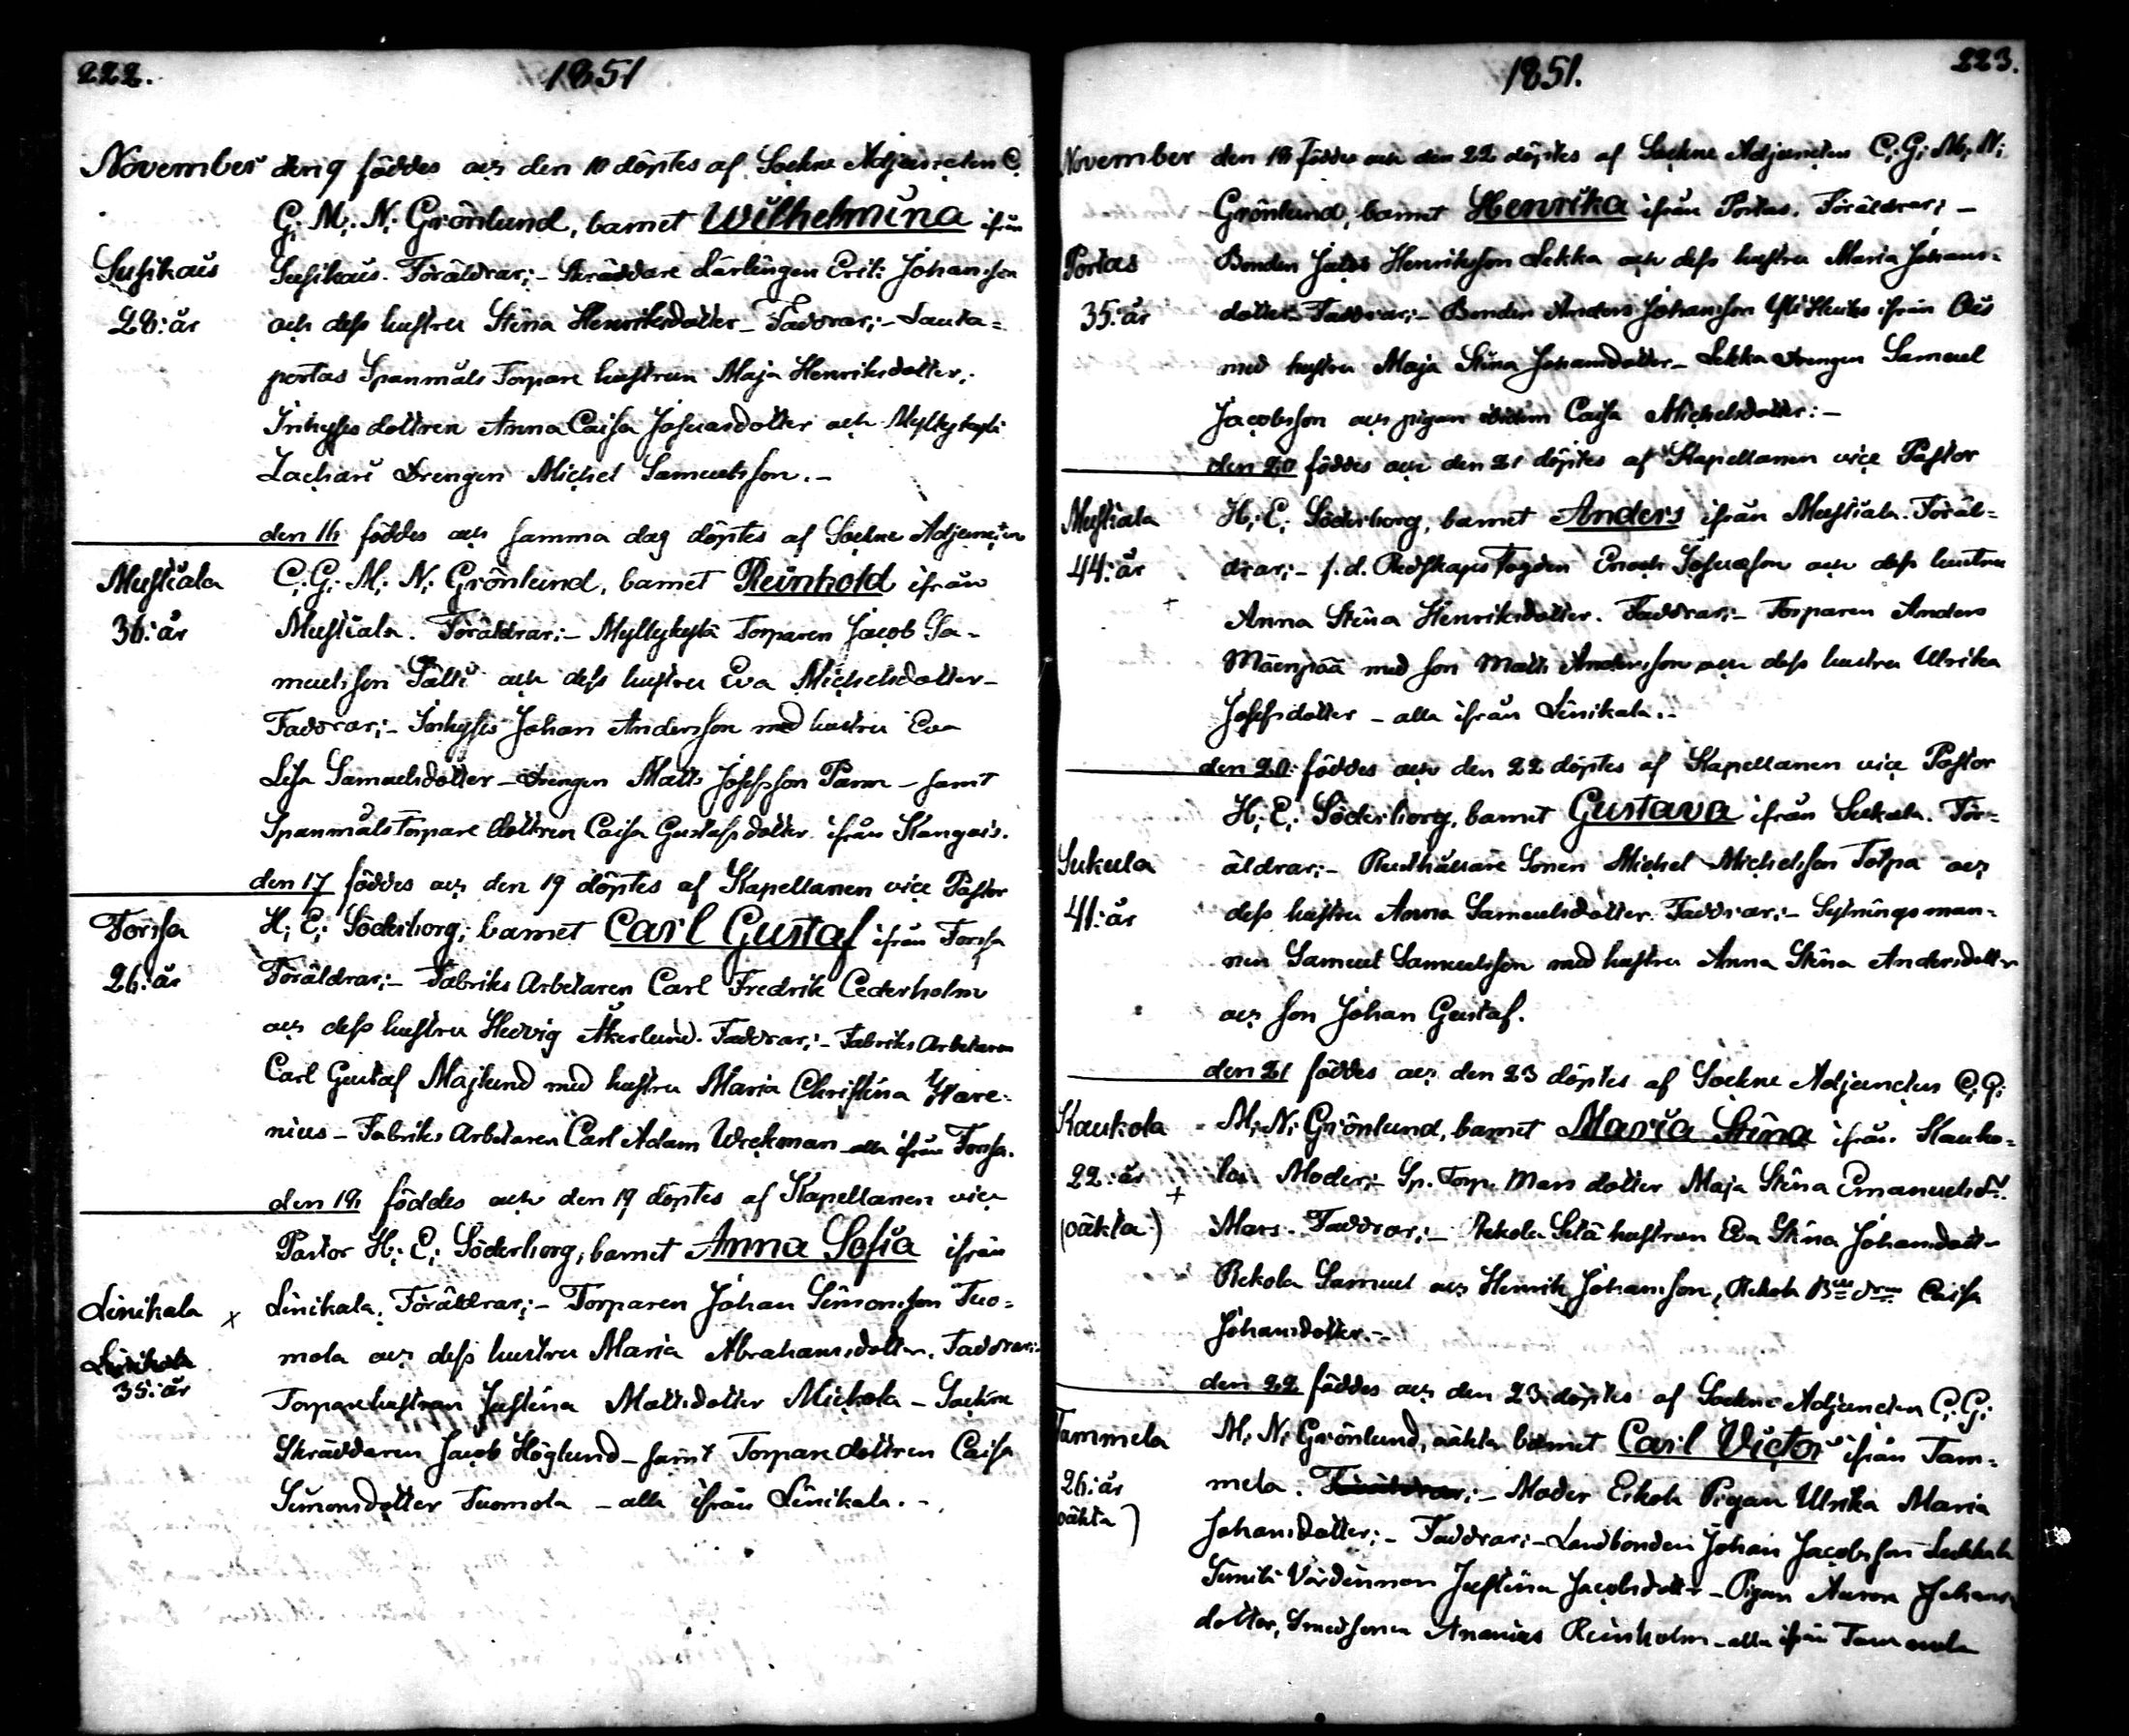 222. 1851
November den 9 föddes och den 10 döptes af Sockne Adjuncten C.
G. M. N. Grönlund, barnet Wilhelmina ifrån
Susikas Susikas. Föräldrar;- Skräddare Lärlingen Eric Johansson
28: år och dess hustru Stina Henriksdotter - Faddrar;- Lauta=
portas Spanmåls Torpare hustrun Maja Henriksdotter,
Inhyses dottren Anna Caisa Josuasdotter och Myllykylä
Zachari Drengen Michel Samuelsson.-
den 16 föddes och samma dag döptes af Sockne Adjuncten
Mustiala C. G. M. N. Grönlund, barnet Reinhold ifrån
36: år Mustiala. Föräldrar;- Myllykylä Torparen Jacob Sa-
muelsson Pältti och dess hustru Eva Michelsdotter-
Faddrar;- Inhyses Johan Andersson med hustru Eva
Lisa Samuelsdotter - Drengen Matts Josefsson Parm - samt
Spanmåls Torpare dottren Caisa Gustafsdotter ifrån Kangais.
den 17 föddes och den 19 döptes af Kapellanen vice Pastor
Forssa H. E. Söderborg, barnet Carl Gustaf ifrån Forssa
26: år Föräldrar;- Fabriks Arbetaren Carl Fredrik Cederholm
och dess hustru Hedvig Åkerlund. Faddrar;- Fabriks Arbetaren
Carl Gustaf Majlund med hustru Maria Christina Ware-
nius - Fabriks Arbetaren Carl Adam Wrekman - alla ifrån Forssa.
den 18 föddes och den 19 döptes af Kapellanen vice
Pastor H. E. Söderborg, barnet Anna Sofia ifrån
Linikala x Linikala. Föräldrar;- Torparen Johan Simonsson Tuo=
Linikala mola och dess hustru Maria Abrahamsdotter. Faddrar;-
35: år Torparehustrun Justina Mattsdotter Mickola - Sockne
Skräddaren Jacob Höglund - samt Torpare dottren Caisa
Simonsdotter Tuomola - alla ifrån Linikala.-
1851. 223.
November den 18 föddes och den 22 döptes af Sockne Adjuncten C. G. M. N.
Grönlund, barnet Henrika ifrån Portas. Föräldrar;-
Portas Bonden Jacob Henriksson Lekka och dess hustru Maria Johans=
35: år dotter - Faddrar;- Bonden Anders Johansson ifrån
med hustru Maja Stina Johansdotter - Lekka Drengen Samuel
Jacobsson och pigan ibidem Caisa Michelsdotter:-
den 20 föddes och den 21 döptes af Kapellanen vice Pastor
Mustiala H. E. Söderborg, barnet Anders ifrån Mustiala. Föräl=
44: år drar;- f. d. Redskaps Fogden Enoch Josuasson och dess hustru
+ Anna Stina Henriksdotter. Faddrar;- Torparen Anders
Mäenpää med son Matts Andersson och dess hustru Ulrika
Josefsdotter - alla ifrån Linikala.-
den 20 föddes och den 22 döptes af Kapellanen vice Pastor
H. E. Söderborg, barnet Gustava ifrån Sukula. För=
Sukula äldrar;- Rusthållare Sonen Michel Michelsson Tolpa och
41: år dess hustru Anna Samuelsdotter. Faddrar;- Sytningsman-
nen Samuel Samuelsson med hustru Anna Stina Andersdotter
och son Johan Gustaf.
den 21 föddes och den 23 döptes af Sockne Adjuncten C. G.
Kaukola M. N. Grönlund, barnet Maria Stina ifrån Kauko=
22: år + la. Moder;- Sp. Torp. Mars dotter Maja Stina Emanuelsdr.
(oäkta) Mars. Faddrar;- Rekola hustrun Eva Stina Johansdotter
Rekola Samuel och Henrik Johansson, Rekola Caisa
Johansdotter.-
den 22 föddes och den 23 döptes af Sockne Adjuncten C. G.
Tammela M. N. Grönlund, oäkta barnet Carl Victor ifrån Tam-
26: år mela. Föräldrar;- Moder Eskola Pigan Ulrika Maria
oäkta) Johansdotter;- Faddrar;- Landbonden Johan Jacobsson
Värdinnan Justina Jacobsdotter - Pigan Johans
dotter, Smedsonen Ananias Reinholm - alla ifrån Tammela